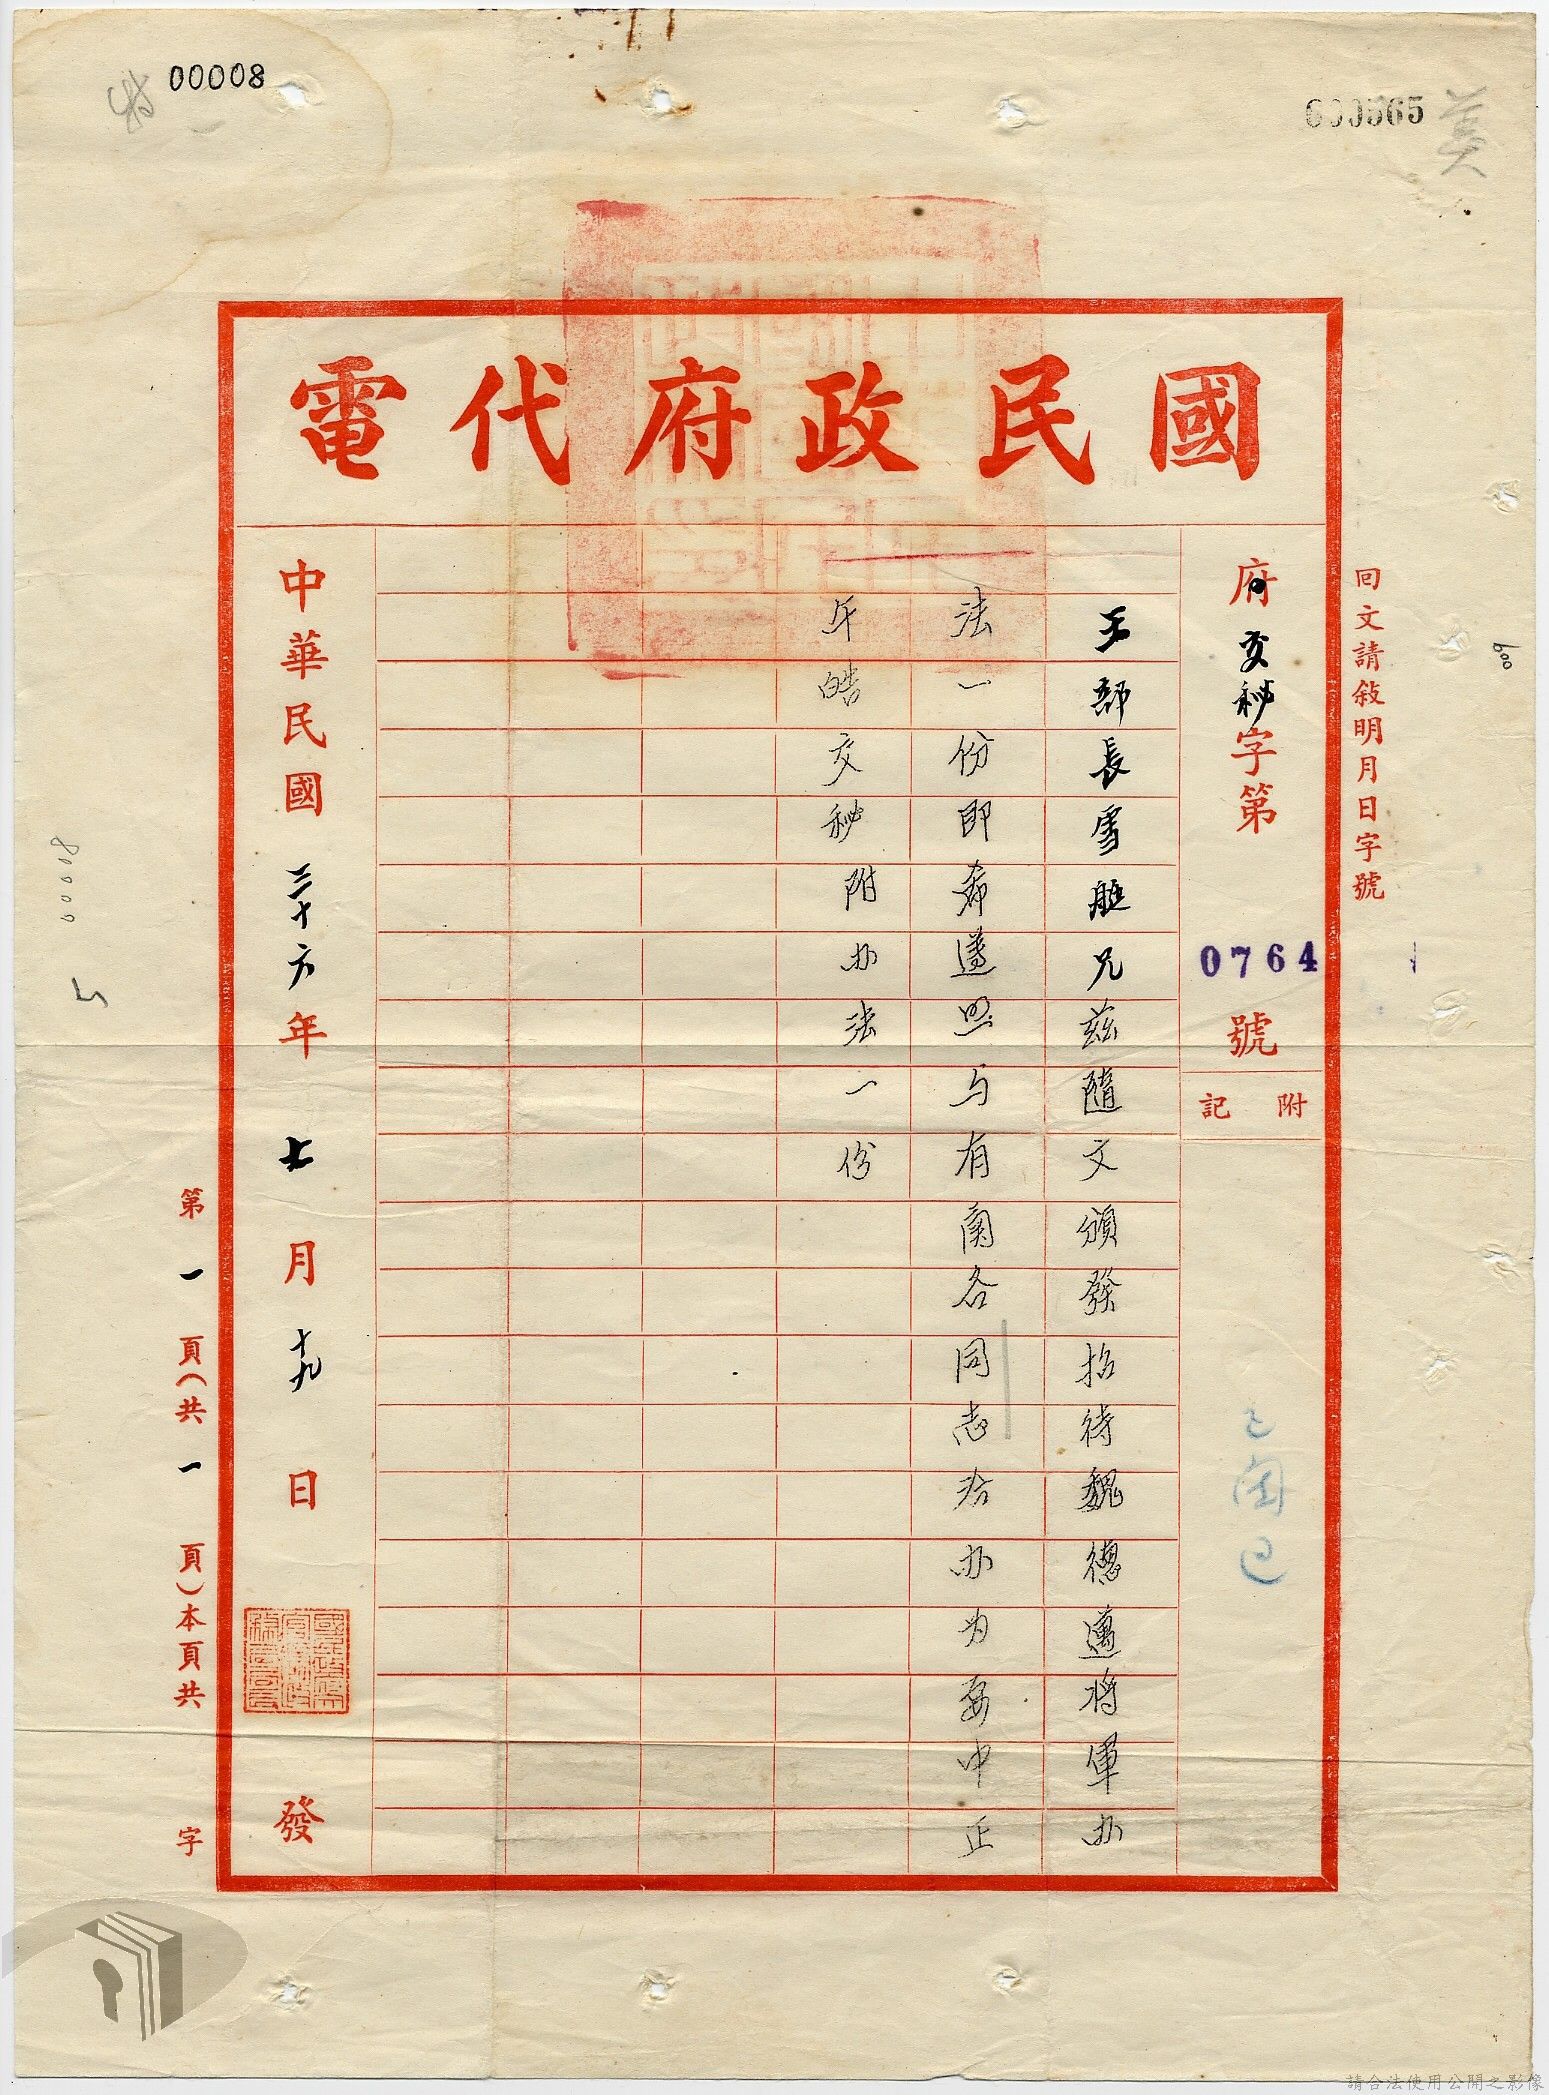 00008
600565
美
國民政府代電
回文請敍明月日字號
府交秘字第0764號
附記
王部長雪艇兄茲隨文頒發招待魏德邁將軍办
法一份即希遵照与有関各同志洽办为要中正
午皓交秘附办法一份
中華民國三十六年七月十九日發
第一頁(共一頁)本頁共字
00008
600
請合法使用公開之影像